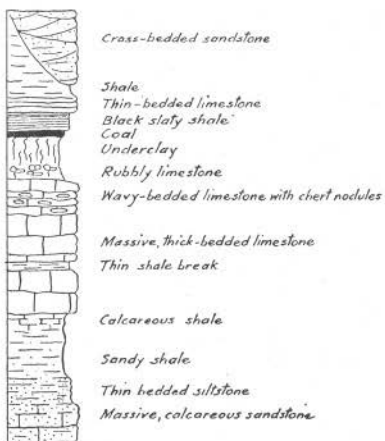 Cross-bedded sandstone
Shale
Thin-bedded limestone
Black slaty shale
Coal
Underclay
Rubbly limestone
Wavy-bedded limestone with chert nodules
Massive, thick-bedded limestone
Thin shale break
Calcareous shale
Sandy shale
Thin bedded siltstone
Massive, calcareous sandstone